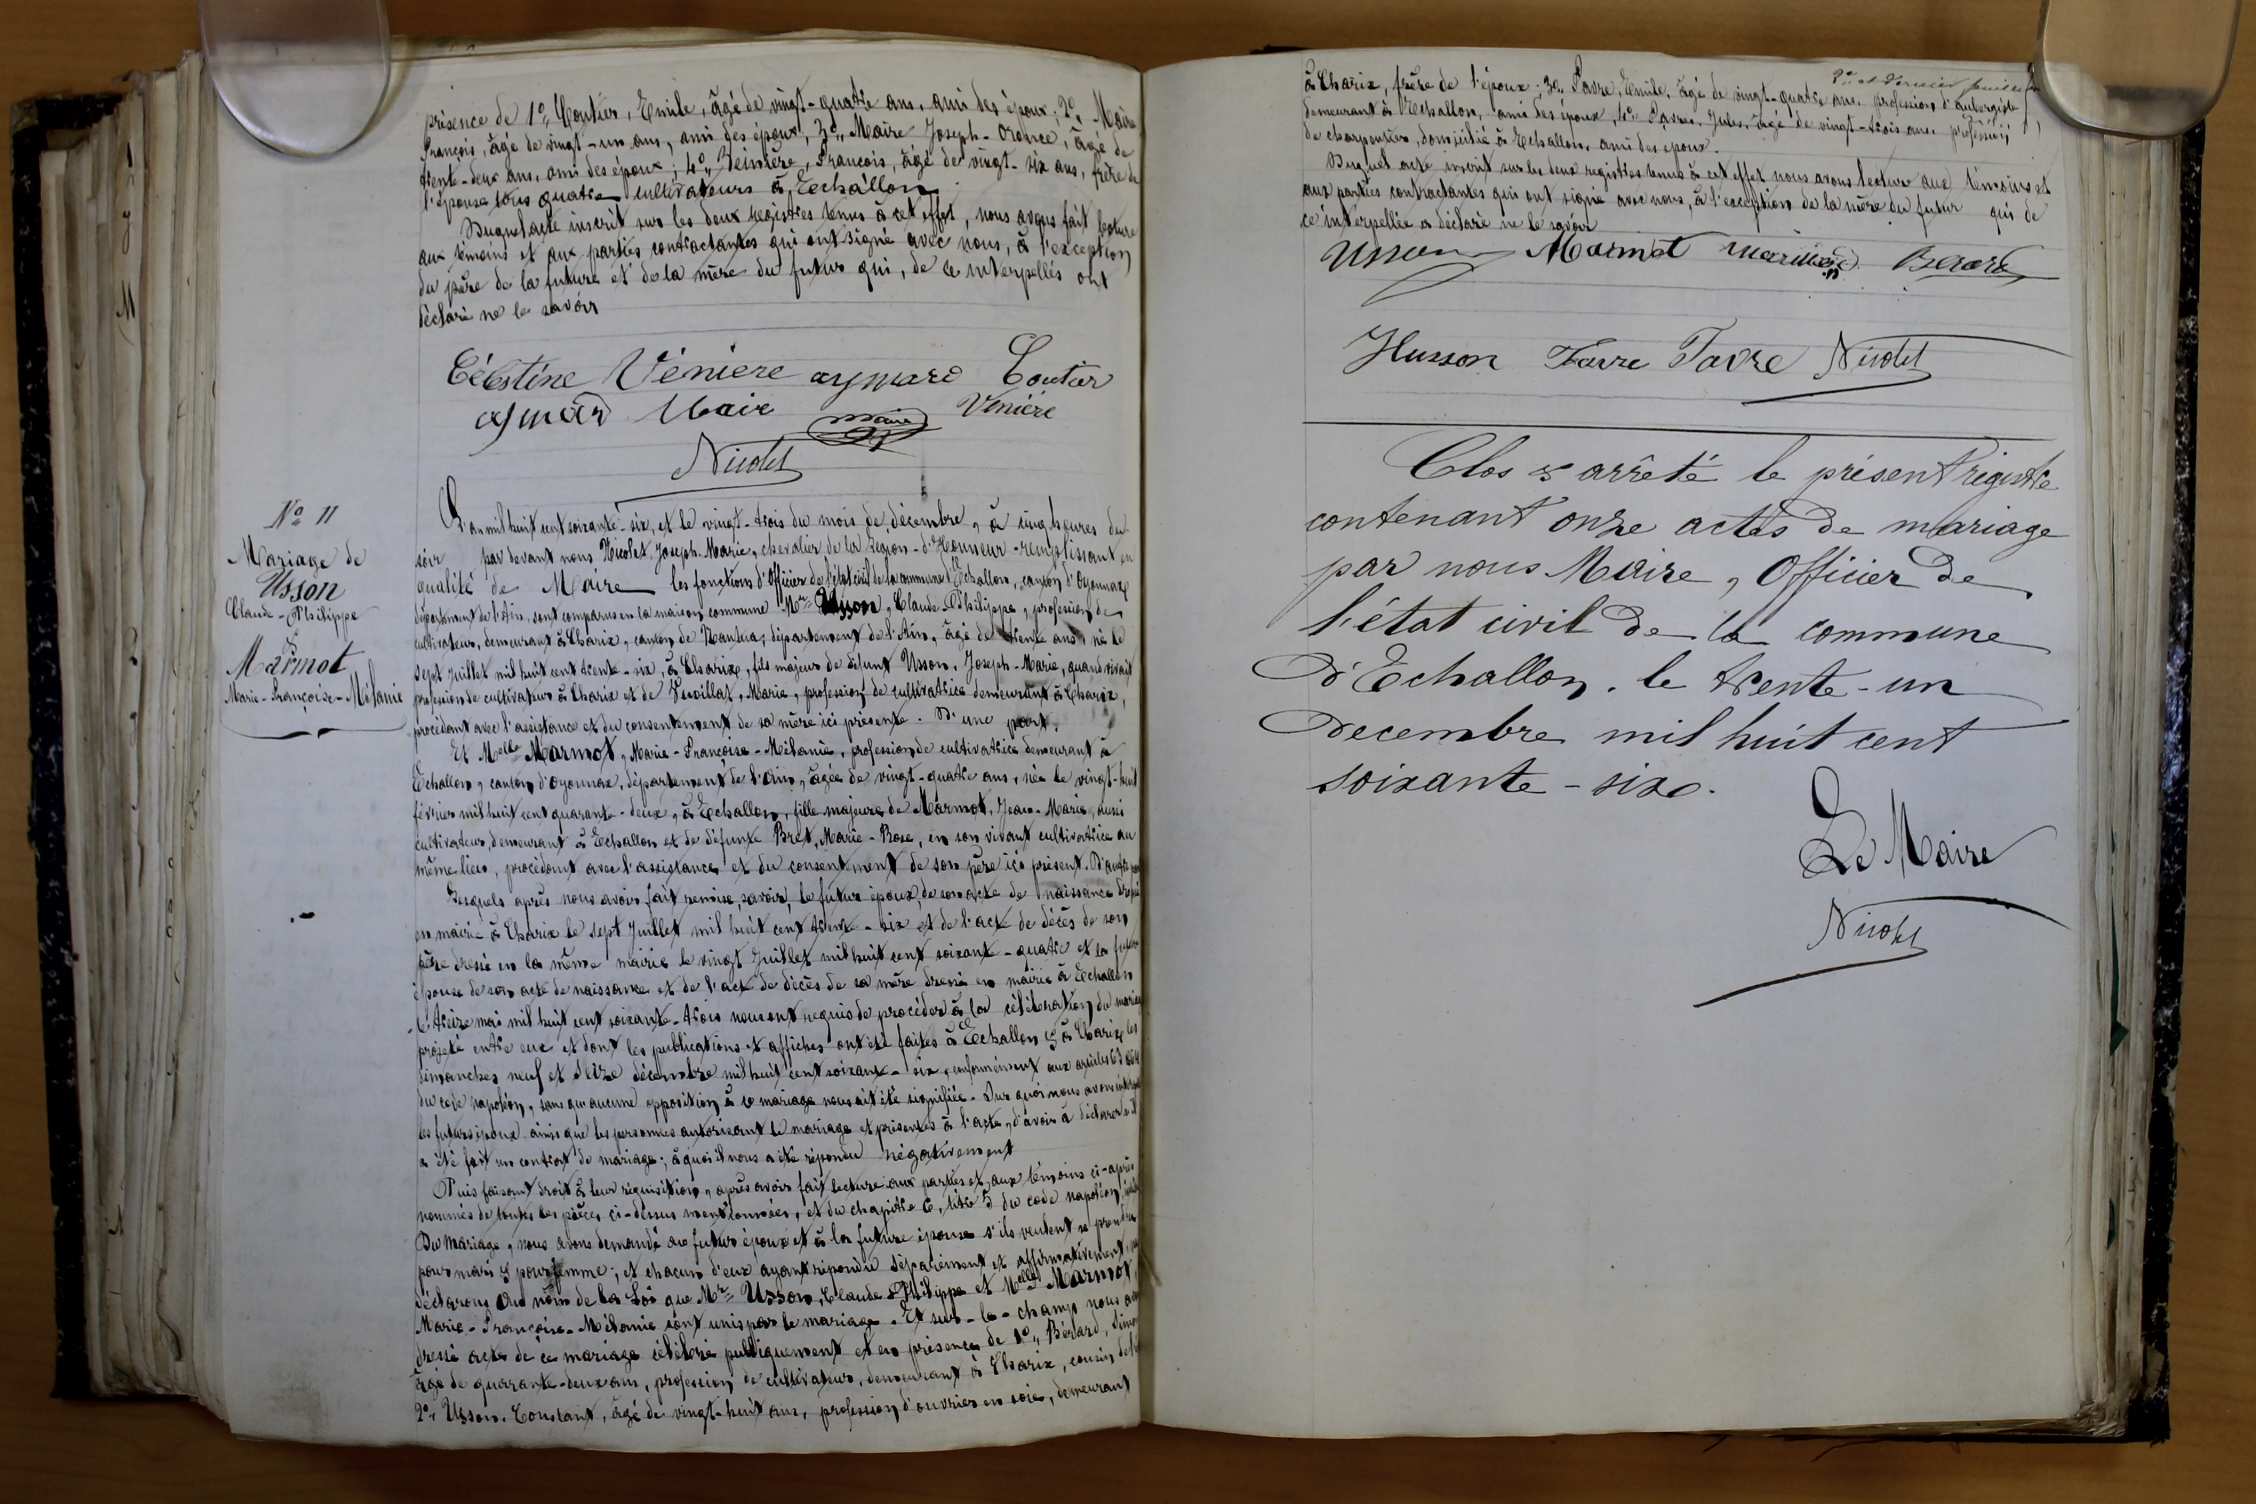 présence de 1o,, Coutier, Emile, âgé de vingt-quatre ans, ami des époux; 2o,, Maire
François, âgé de vingt-un ans, ami des époux; 3o,, Maire Joseph-Orance, âgé de
trente-deux ans, ami des époux; 4o,, Veinière, François, âgé de vingt-six ans, frère de
l'épouse tous quatre cultivateurs à Echallon.
Duquel acte inscrit sur les deux registres tenus à cet effet, nous avons fait lecture
aux témoins et aux parties contractantes qui ont signé avec nous, à l'exception
du père de la future et de la mère du futur qui, de ce interpellés ont
déclaré ne le savoir
Célestine Vénière aymard Coutier
aymard Maire Maire Vénière
Nicolet
No 11
Mariage de
Usson
Claude-Philippe
&
Marmot
Marie-Françoise-Mélanie
L'an mil huit cent soixante-six, et le vingt-trois du mois de décembre, à cinq heures du
soir par devant nous Nicolet, Joseph-Marie, chevalier de la Légion-d'Honneur-remplissant en
qualité de Maire les fonctions d'Officier de l'état civil de la commune d'Echallon, canton d'Oyonnax
département de l'Ain, sont comparus en la maison commune Mr Usson, Claude-Philippe, profession de
cultivateur, demeurant à Charix, canton de Nantua, département de l'Ain, âgé de trente ans, né le
sept juillet mil huit cent trente-six, à Charix, fils majeur de défunt Usson, Joseph-Marie, quand vivait
profession de cultivateur à Charix et de Vuaillat, Marie, profession de cultivatrice demeurant à Charix,
procédant avec l'assistance et du consentement de sa mère ici présente. D'une part,
Et Melle Marmot, Marie-Françoise-Mélanie, profession de cultivatrice demeurant à
Echallon, canton d'Oyonnax, département de l'Ain, âgée de vingt-quatre ans, née le vingt-huit
février mil huit cent quarante-deux, à Echallon, fille majeure de Marmot, Jean-Marie, aussi
cultivateur, demeurant à Echallon et de défunte Bret, Marie-Rose, en son vivant cultivatrice au
même lieu, procédant avec l'assistance et du consentement de son père ici présent. D'autre part
Lesquels après nous avoir fait remise, savoir, le futur époux, de son acte de naissance dressé
en mairie à Charix le sept Juillet mil huit cent trente-six et de l'acte de décès de son
père dressé en la même mairie le vingt Juillet mil huit cent soixante-quatre et la future
épouse de son acte de naissance et de l'acte de décès de sa mère dressé en mairie à Echallon
le treize mai mil huit cent soixante-trois nous ont requis de procéder à la célébration du mariage
projeté entre eux et dont les publications et affiches ont été faites à Echallon & à Charix les
dimanches neuf et seize décembre mil huit cent soixante-six, conformément aux articles 63 & 64
du code napoléon, sans qu'aucune opposition à ce mariage nous ait été signifiée. Sur quoi nous avons interpellé
les futurs époux ainsi que les personnes autorisant le mariage et présentes à l'acte, d'avoir à déclarer s'il
a été fait un contrat de mariage; à quoi il nous a été répondu négativement
Puis faisant droit à leur réquisition, après avoir fait lecture aux parties et aux témoins ci-après
nommés de toutes les pièces ci-dessus mentionnées, et du chapitre 6, titre 5 du code napoléon, intitulé
Du Mariage, nous avons demandé au futur époux et à la future épouse s'ils veulent se prendre
pour mari & pour femme; et chacun d'eux ayant répondu séparément et affirmativement, nous
déclarons au nom de la Loi que Mr Usson, Claude-Philippe et Melle Marmot,
Marie-Françoise-Mélanie sont unis par le mariage. Et sur-le-champ nous avons
dressé acte de ce mariage célébré publiquement et en présence de 1o,, Bérard, Simon
âgé de quarante-deux ans, profession de cultivateur, demeurant à Charix, cousin de l'époux
2o,, Usson, Constant, âgé de vingt-huit ans, profession d'ouvrier en soie, demeurant
2e et dernier feuillet
à Charix, frère de l'époux; 3o,, Favre, Emile, âgé de vingt-quatre ans, profession d'aubergiste
demeurant à Echallon, ami des époux, 4o,, Favre, Jules, âgé de vingt-trois ans, profession
de charpentier, domicilié à Echallon, ami des époux.
Duquel acte inscrit sur les deux registres tenus à cet effet nous avons lecture aux témoins et
aux parties contractantes qui ont signé avec nous, à l'exception de la mère du futur qui de
ce interpellée a déclaré ne le savoir
Usson Marmot Berard
Husson Favre Favre Nicolet
Clos & arrêté le présent régistre
contenant onze actes de mariage
par nous Maire, Officier de
l'état civil de la commune
d'Echallon, le trente-un
Decembre mil huit cent
soixante-six.
Le Maire
Nicolet